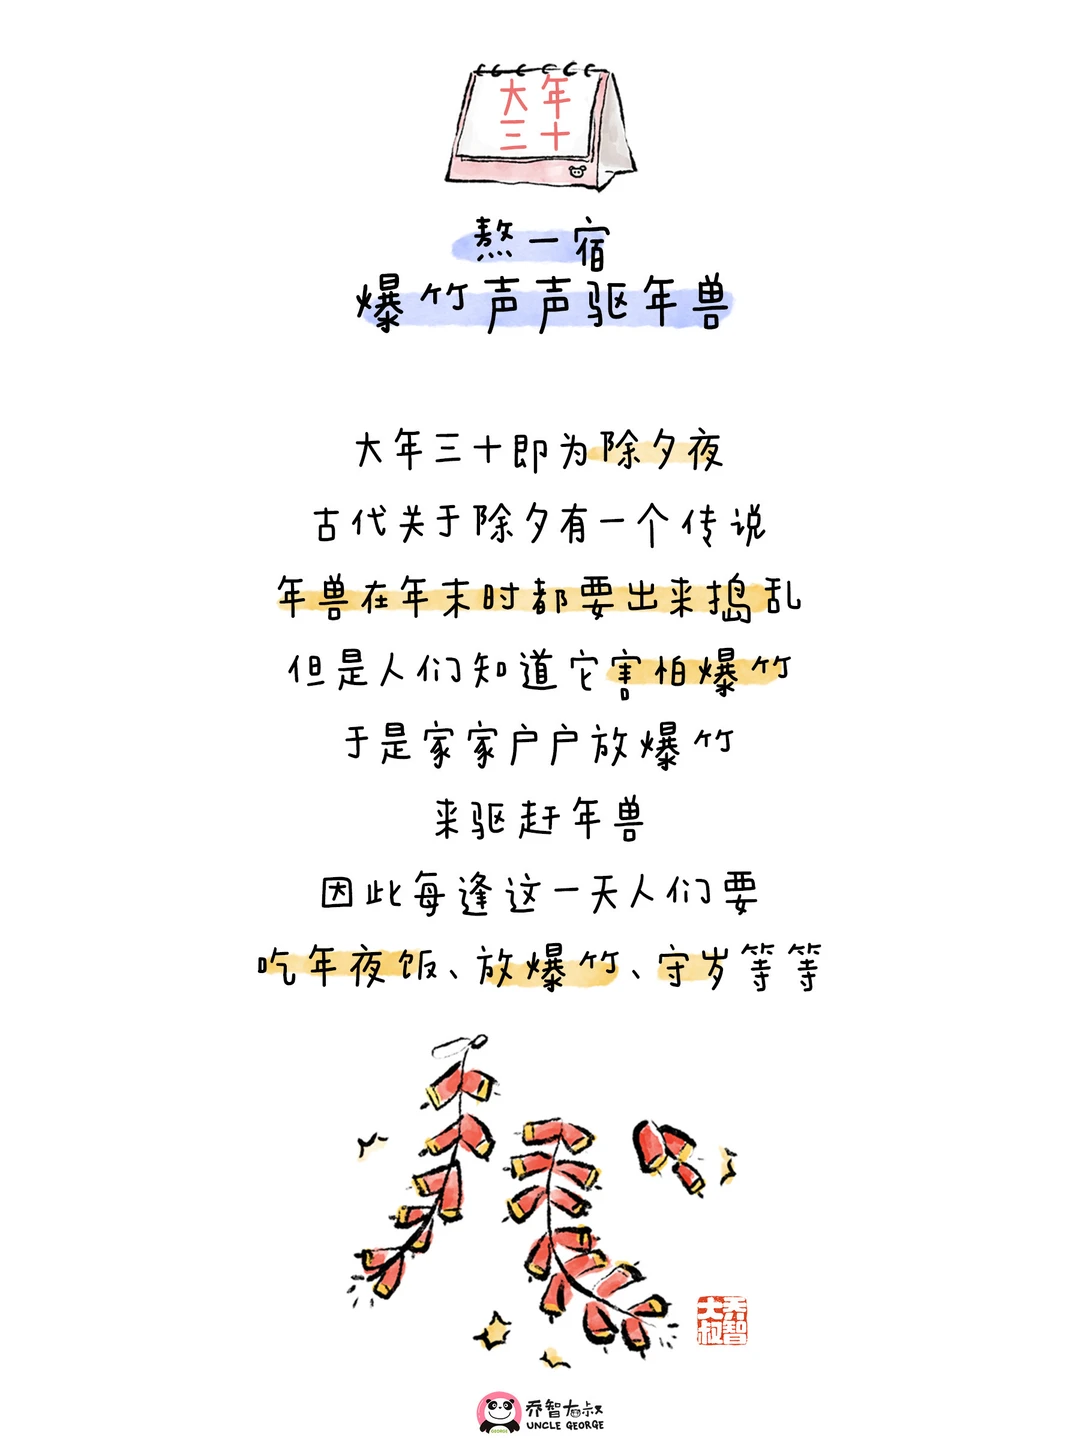 大年
三十
熬一宿
爆竹声声驱年兽
大年三十即为除夕夜
古代关于除夕有一个传说
年兽在年末时都要出来捣乱
但是人们知道它害怕爆竹
于是家家户户放爆竹
来驱赶年兽
因此每逢这一天人们要
吃年夜饭、放爆竹、守岁等等
乔智大叔
乔智大叔
UNCLE GEORGE
GEORGE